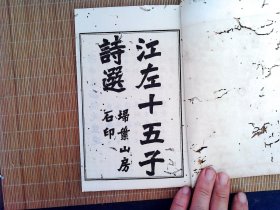 江左十五子
詩選
掃葉山房
石印